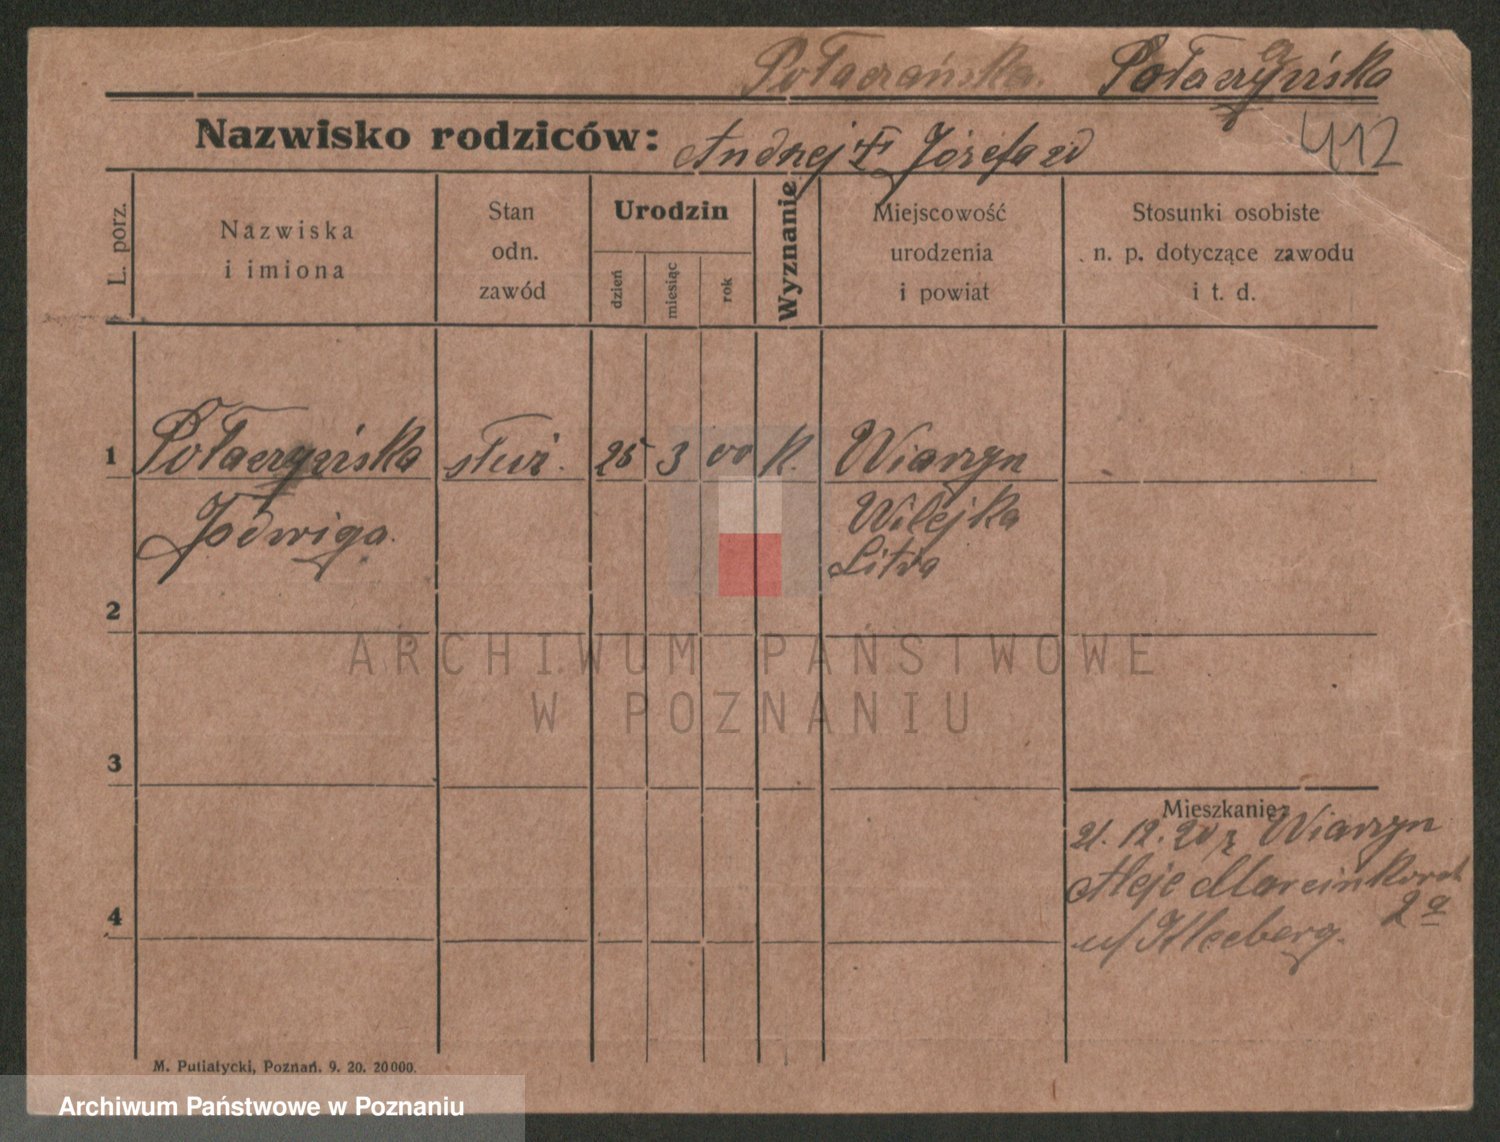 Połaczańska. Połaczańska
412
Nazwisko rodziców: Andrzej Józefa zd
L. porz.
Nazwiska
i imiona
Stan
odn.
zawód
Urodzin
dzień
miesiąc
rok
Wyznanie
Miejscowość
urodzenia
i powiat
Stosunki osobiste
n. p. dotyczące zawodu
i t. d.
1 służ. 25 3 00 k. Wiazyn
Jadwiga. Wilejka
Litwa
2
3
4
Mieszkanie:
21.12.20 z Wiazyn
Aleje Marcinkowsk
2a
u/ Kleeberg.
M. Putiatycki, Poznań. 9. 20. 20000.
ARCHIWUM PAŃSTWOWE
W POZNANIU
Archiwum Państwowe w Poznaniu